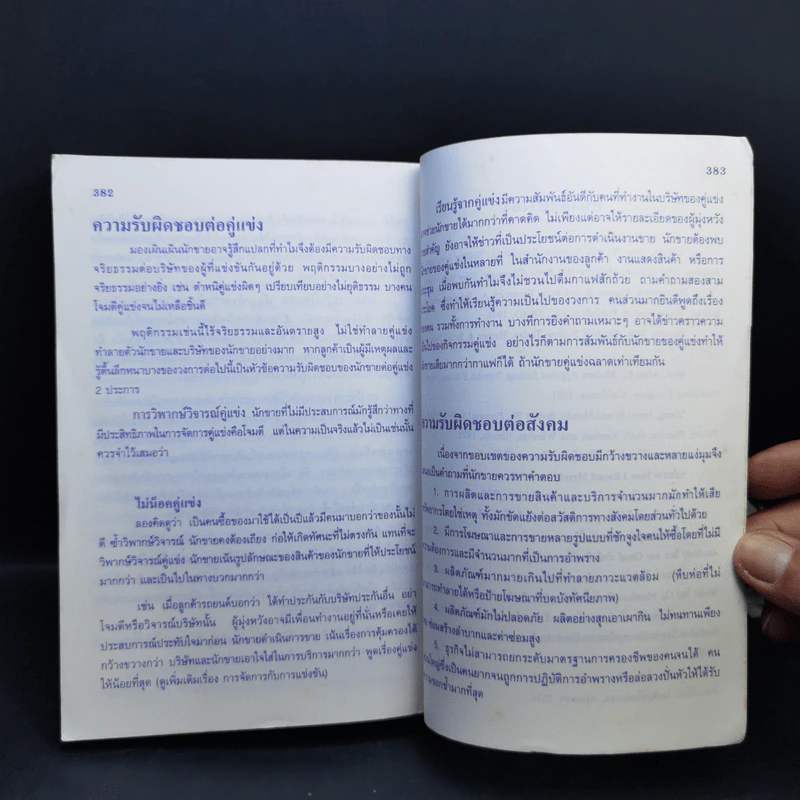 382
ความรับผิดชอบต่อคู่แข่ง
มองเผินเผินนักขายอาจรู้สึกแปลกที่ทำไมจึงต้องมีความรับผิดชอบทาง
จริยธรรมต่อบริษัทของผู้ที่แข่งขันกันอยู่ด้วย พฤติกรรมบางอย่างไม่ถูก
จริยธรรมอย่างยิ่ง เช่น ตำหนิคู่แข่งผิดๆ เปรียบเทียบอย่างไม่ยุติธรรม บางคน
โจมตีคู่แข่งจนไม่เหลือชิ้นดี
พฤติกรรมเช่นนี้ไร้จริยธรรมและอันตรายสูง ไม่ใช่ทำลายคู่แข่ง
ทำลายตัวนักขายและบริษัทของนักขายอย่างมาก หากลูกค้าเป็นผู้มีเหตุผลและ
รู้ตื้นลึกหนาบางของวงการต่อไปนี้เป็นหัวข้อความรับผิดชอบของนักขายต่อคู่แข่ง
2 ประการ
การวิพากษ์วิจารณ์คู่แข่ง นักขายที่ไม่มีประสบการณ์มักรู้สึกว่าทางที่
มีประสิทธิภาพในการจัดการคู่แข่งคือโจมตี แต่ในความเป็นจริงแล้วไม่เป็นเช่นนั้น
ควรจำไว้เสมอว่า
ไม่น็อคคู่แข่ง
ลองคิดดูว่า เป็นคนซื้อของมาใช้ได้เป็นปีแล้วมีคนมาบอกว่าของนั้นไม่
ดี ซ้ำวิพากษ์วิจารณ์ นักขายคงต้องเถียง ก่อให้เกิดทัศนะที่ไม่ตรงกัน แทนที่จะ
วิพากษ์วิจารณ์คู่แข่ง นักขายเน้นรูปลักษณะของสินค้าของนักขายที่ให้ประโยชน์
มากกว่า และเป็นไปในทางบวกมากกว่า
เช่น เมื่อลูกค้ารถยนต์บอกว่า ได้ทำประกันกับบริษัทประกันอื่น อย่า
โจมตีหรือวิจารณ์บริษัทนั้น ผู้มุ่งหวังอาจมีเพื่อนทำงานอยู่ที่นั่นหรือเคยให้
ประสบการณ์ประทับใจมาก่อน นักขายดำเนินการขาย เน้นเรื่องการคุ้มครองได้
กว้างขวางกว่า บริษัทและนักขายเอาใจใส่ในการบริการมากกว่า พูดเรื่องคู่แข่ง
ให้น้อยที่สุด (ดูเพิ่มเติมเรื่อง การจัดการกับการแข่งขัน)
383
เรียนรู้จากคู่แข่ง มีความสัมพันธ์อันดีกับคนที่ทำงานในบริษัทของคู่แข่ง
ช่วยนักขายได้มากกว่าที่คาดคิด ไม่เพียงแต่อาจให้รายละเอียดของผู้มุ่งหวัง
สำคัญ ยังอาจให้ข่าวที่เป็นประโยชน์ต่อการดำเนินงานขาย นักขายต้องพบ
ขายของคู่แข่งในหลายที่ ในสำนักงานของลูกค้า งานแสดงสินค้า หรือการ
ประชุม เมื่อพบกันทำไมจึงไม่ชวนไปดื่มกาแฟสักถ้วย ถามคำถามสองสาม
ประโยค ซึ่งทำให้เรียนรู้ความเป็นไปของวงการ คนส่วนมากยินดีพูดถึงเรื่อง
ตน รวมทั้งการทำงาน บางทีการยิงคำถามเหมาะๆ อาจได้ข่าวคราวความ
เป็นไปของกิจกรรมคู่แข่ง อย่างไรก็ตามการสัมพันธ์กับนักขายของคู่แข่งทำให้
ขายเสียมากกว่ากาแฟก็ได้ ถ้านักขายคู่แข่งฉลาดเท่าเทียมกัน
ความรับผิดชอบต่อสังคม
เนื่องจากขอบเขตของความรับผิดชอบมีกว้างขวางและหลายแง่มุมจึง
เสนอเป็นคำถามที่นักขายควรหาคำตอบ
1. การผลิตและการขายสินค้าและบริการจำนวนมากมักทำให้เสีย
ทรัพยากรโดยใช่เหตุ ทั้งมักขัดแย้งต่อสวัสดิการทางสังคมโดยส่วนทั่วไปด้วย
2. มีการโฆษณาและการขายหลายรูปแบบที่ชักจูงใจคนให้ซื้อโดยที่ไม่มี
ความต้องการและมีจำนวนมากที่เป็นการอำพราง
3. ผลิตภัณฑ์มากมายเกินไปที่ทำลายภาวะแวดล้อม (หีบห่อที่ไม่
สามารถทำลายได้หรือป้ายโฆษณาที่บดบังทัศนียภาพ)
4. ผลิตภัณฑ์มักไม่ปลอดภัย ผลิตอย่างสุกเอาเผากิน ไม่ทนทานเพียง
พอ ซ่อมสร้างลำบากและค่าซ่อมสูง
5. ธุรกิจไม่สามารถยกระดับมาตรฐานการครองชีพของคนจนได้ คน
ส่วนใหญ่ซึ่งเป็นคนยากจนถูกการปฏิบัติการอำพรางหรือล่อลวงปั่นหัวให้ได้รับ
ความชอกช้ำมากที่สุด